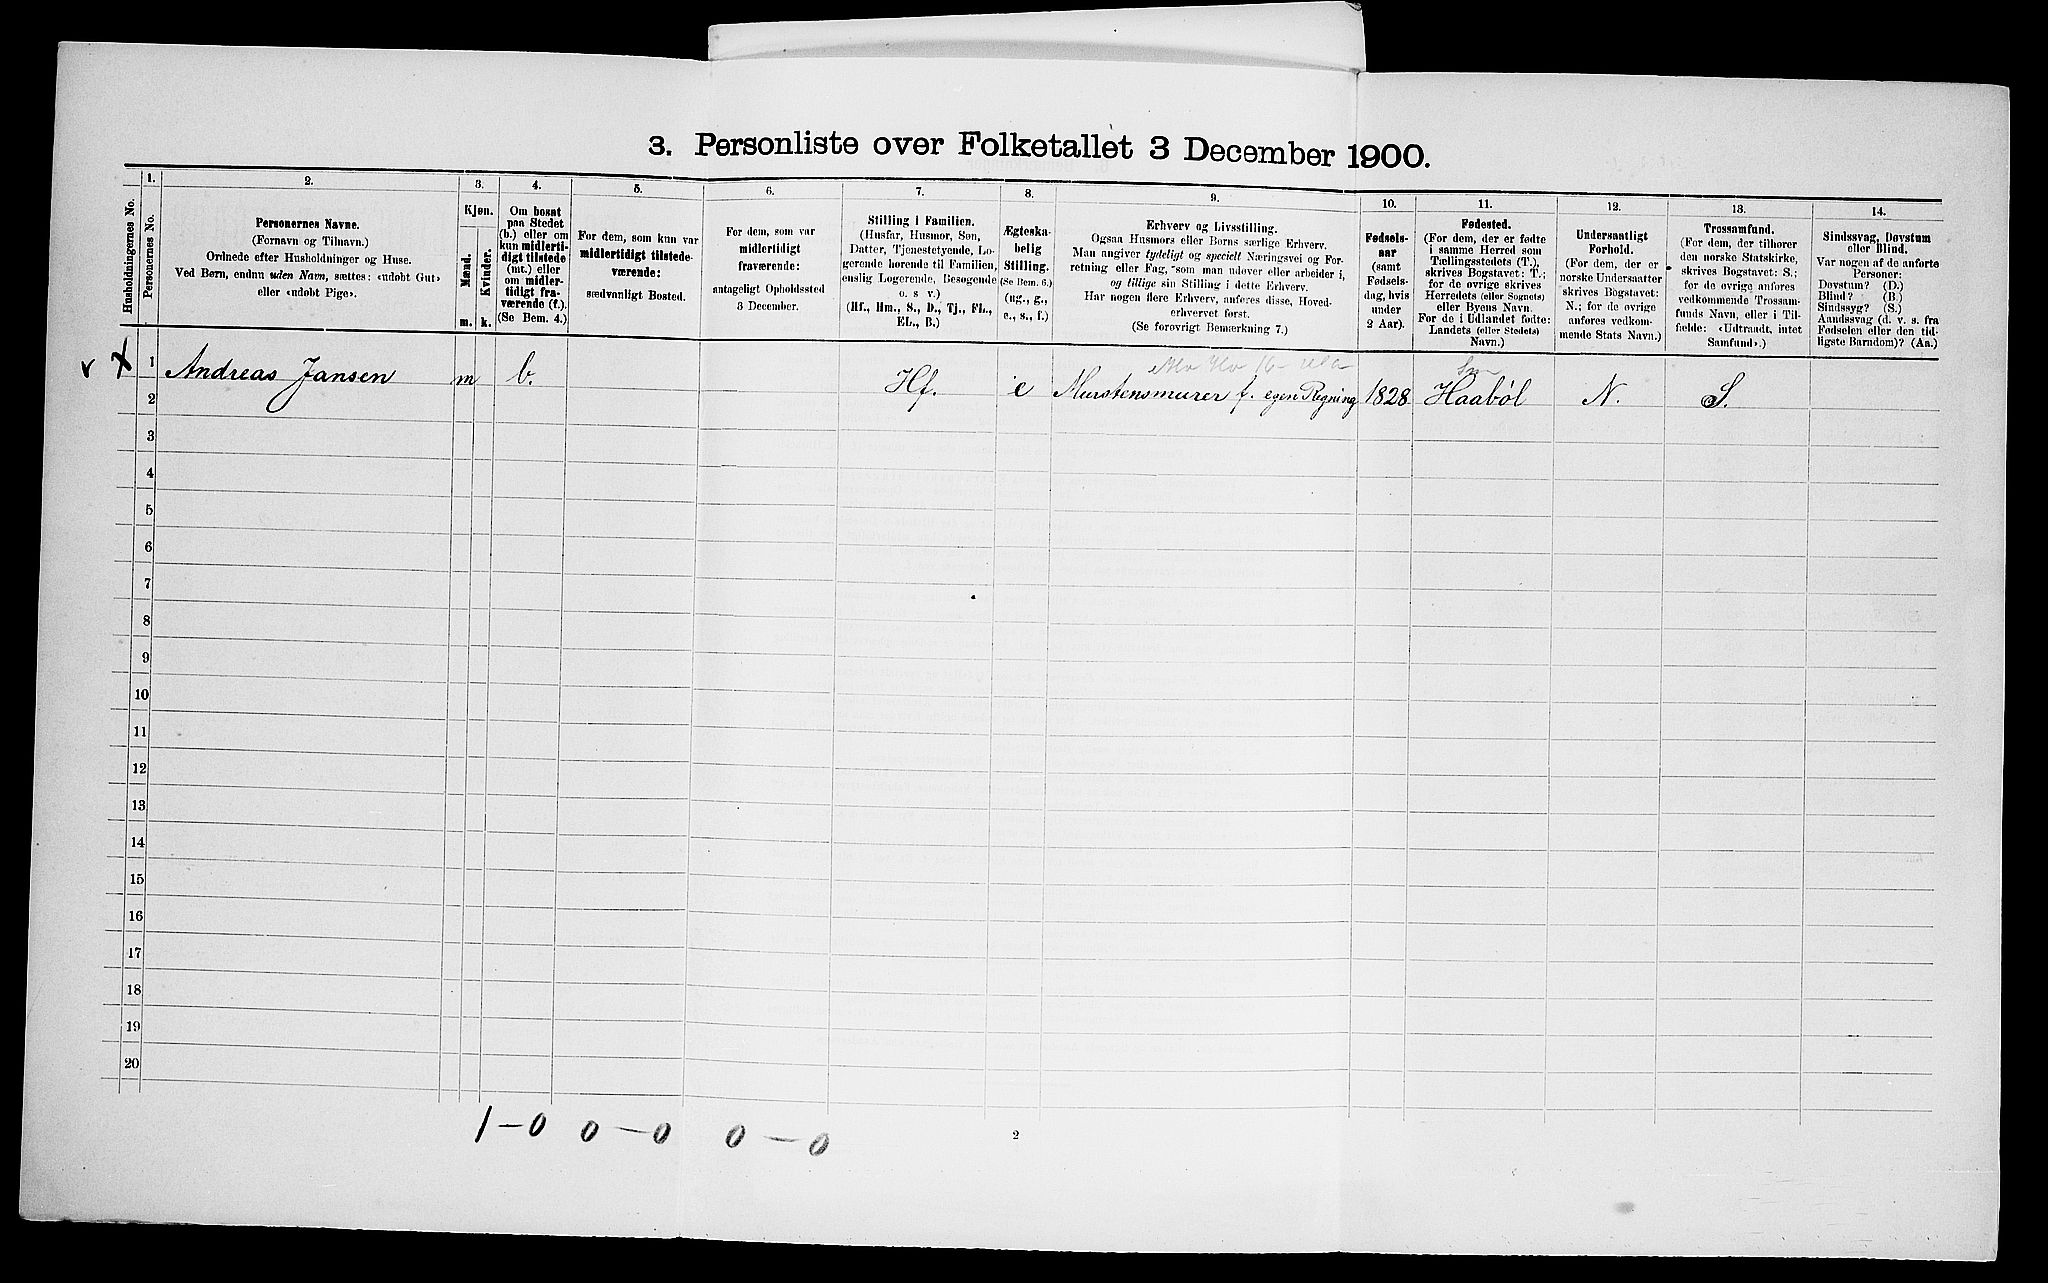 3. Personliste over Folketallet 3 December 1900.
Husholdningernes No.
1.
Personernes No.
2.
Personernes Navne.
(Fornavn og Tilnavn.)
Ordnede efter Husholdninger og Huse.
Ved Børn, endnu uden Navn, sættes: «udøbt Gut»
eller «udøbt Pige».
3.
Kjøn.
Mænd.
m.
Kvinder.
k.
4.
Om bosat
paa Stedet
(b.) eller om
kun midlerti-
digt tilstede
(mt.) eller
om midler-
tidigt fra-
værende (f.).
(Se Bem. 4.)
5.
For dem, som kun var
midlertidigt tilstede-
værende:
sædvanligt Bosted.
6.
For dem, som var
midlertidigt
fraværende:
antageligt Opholdssted
3 December.
7.
Stilling i Familien.
(Husfar, Husmor, Søn,
Datter, Tjenestetyende, Lo-
gerende hørende til Familien,
enslig Logerende, Besøgende
o. s. v.)
(Hf., Hm., S., D., Tj., FL.,
EL., B.)
8.
Ægteska-
belig
Stilling.
(Se Bem. 6.)
(ug., g.,
e., s., f.)
9.
Erhverv og Livsstilling.
Ogsaa Husmors eller Børns særlige Erhverv.
Man angiver tydeligt og specielt Næringsvei og For-
retning eller Fag, som man udøver eller arbeider i,
og tillige sin Stilling i dette Erhverv.
Har nogen flere Erhverv, anføres disse, Hoved-
erhvervet først.
(Se forøvrigt Bemærkning 7.)
10.
Fødsels-
aar
(samt
Fødsels-
dag, hvis
under
2 Aar).
11.
Fødested.
(For dem, der er fødte
i samme Herred som
Tællingsstedets (T.),
skrives Bogstavet: T.;
for de øvrige skrives
Herredets (eller Sognets)
eller Byens Navn.
For de i Udlandet fødte:
Landets (eller Stedets)
Navn.)
12.
Undersaatligt
Forhold.
(For dem, der er
norske Undersaatter
skrives Bogstavet:
N.; for de øvrige
anføres vedkom-
mende Stats Navn.)
13.
Trossamfund.
(For dem, der tilhører
den norske Statskirke,
skrives Bogstavet: S.;
for de øvrige anføres
vedkommende Trossam-
funds Navn, eller i Til-
fælde: «Udtraadt, intet
Samfund».)
14.
Sindssvag, Døvstum
eller Blind.
Var nogen af de anførte
Personer:
Døvstum? (D.)
Blind? (B.)
Sindssyg? (S.)
Aandssvag (d. v. s. fra
Fødselen eller den tid-
ligste Barndom)? (Aa.)
v x 1 Andreas Jansen m b. Hf. e Murstensmurer f. egen Regning 1828 Haabøl N. S.
2
3
4
5
6
7
8
9
10
11
12
13
14
15
16
17
18
19
20
1 – 0 0 – 0 0 – 0
2